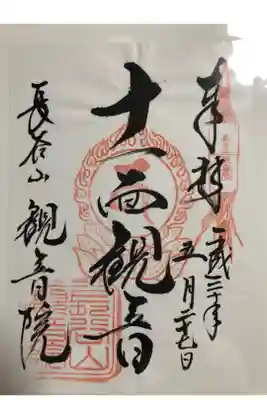 奉拝
平成三十年
五月二十七日
十一面観音
長谷山 観音院